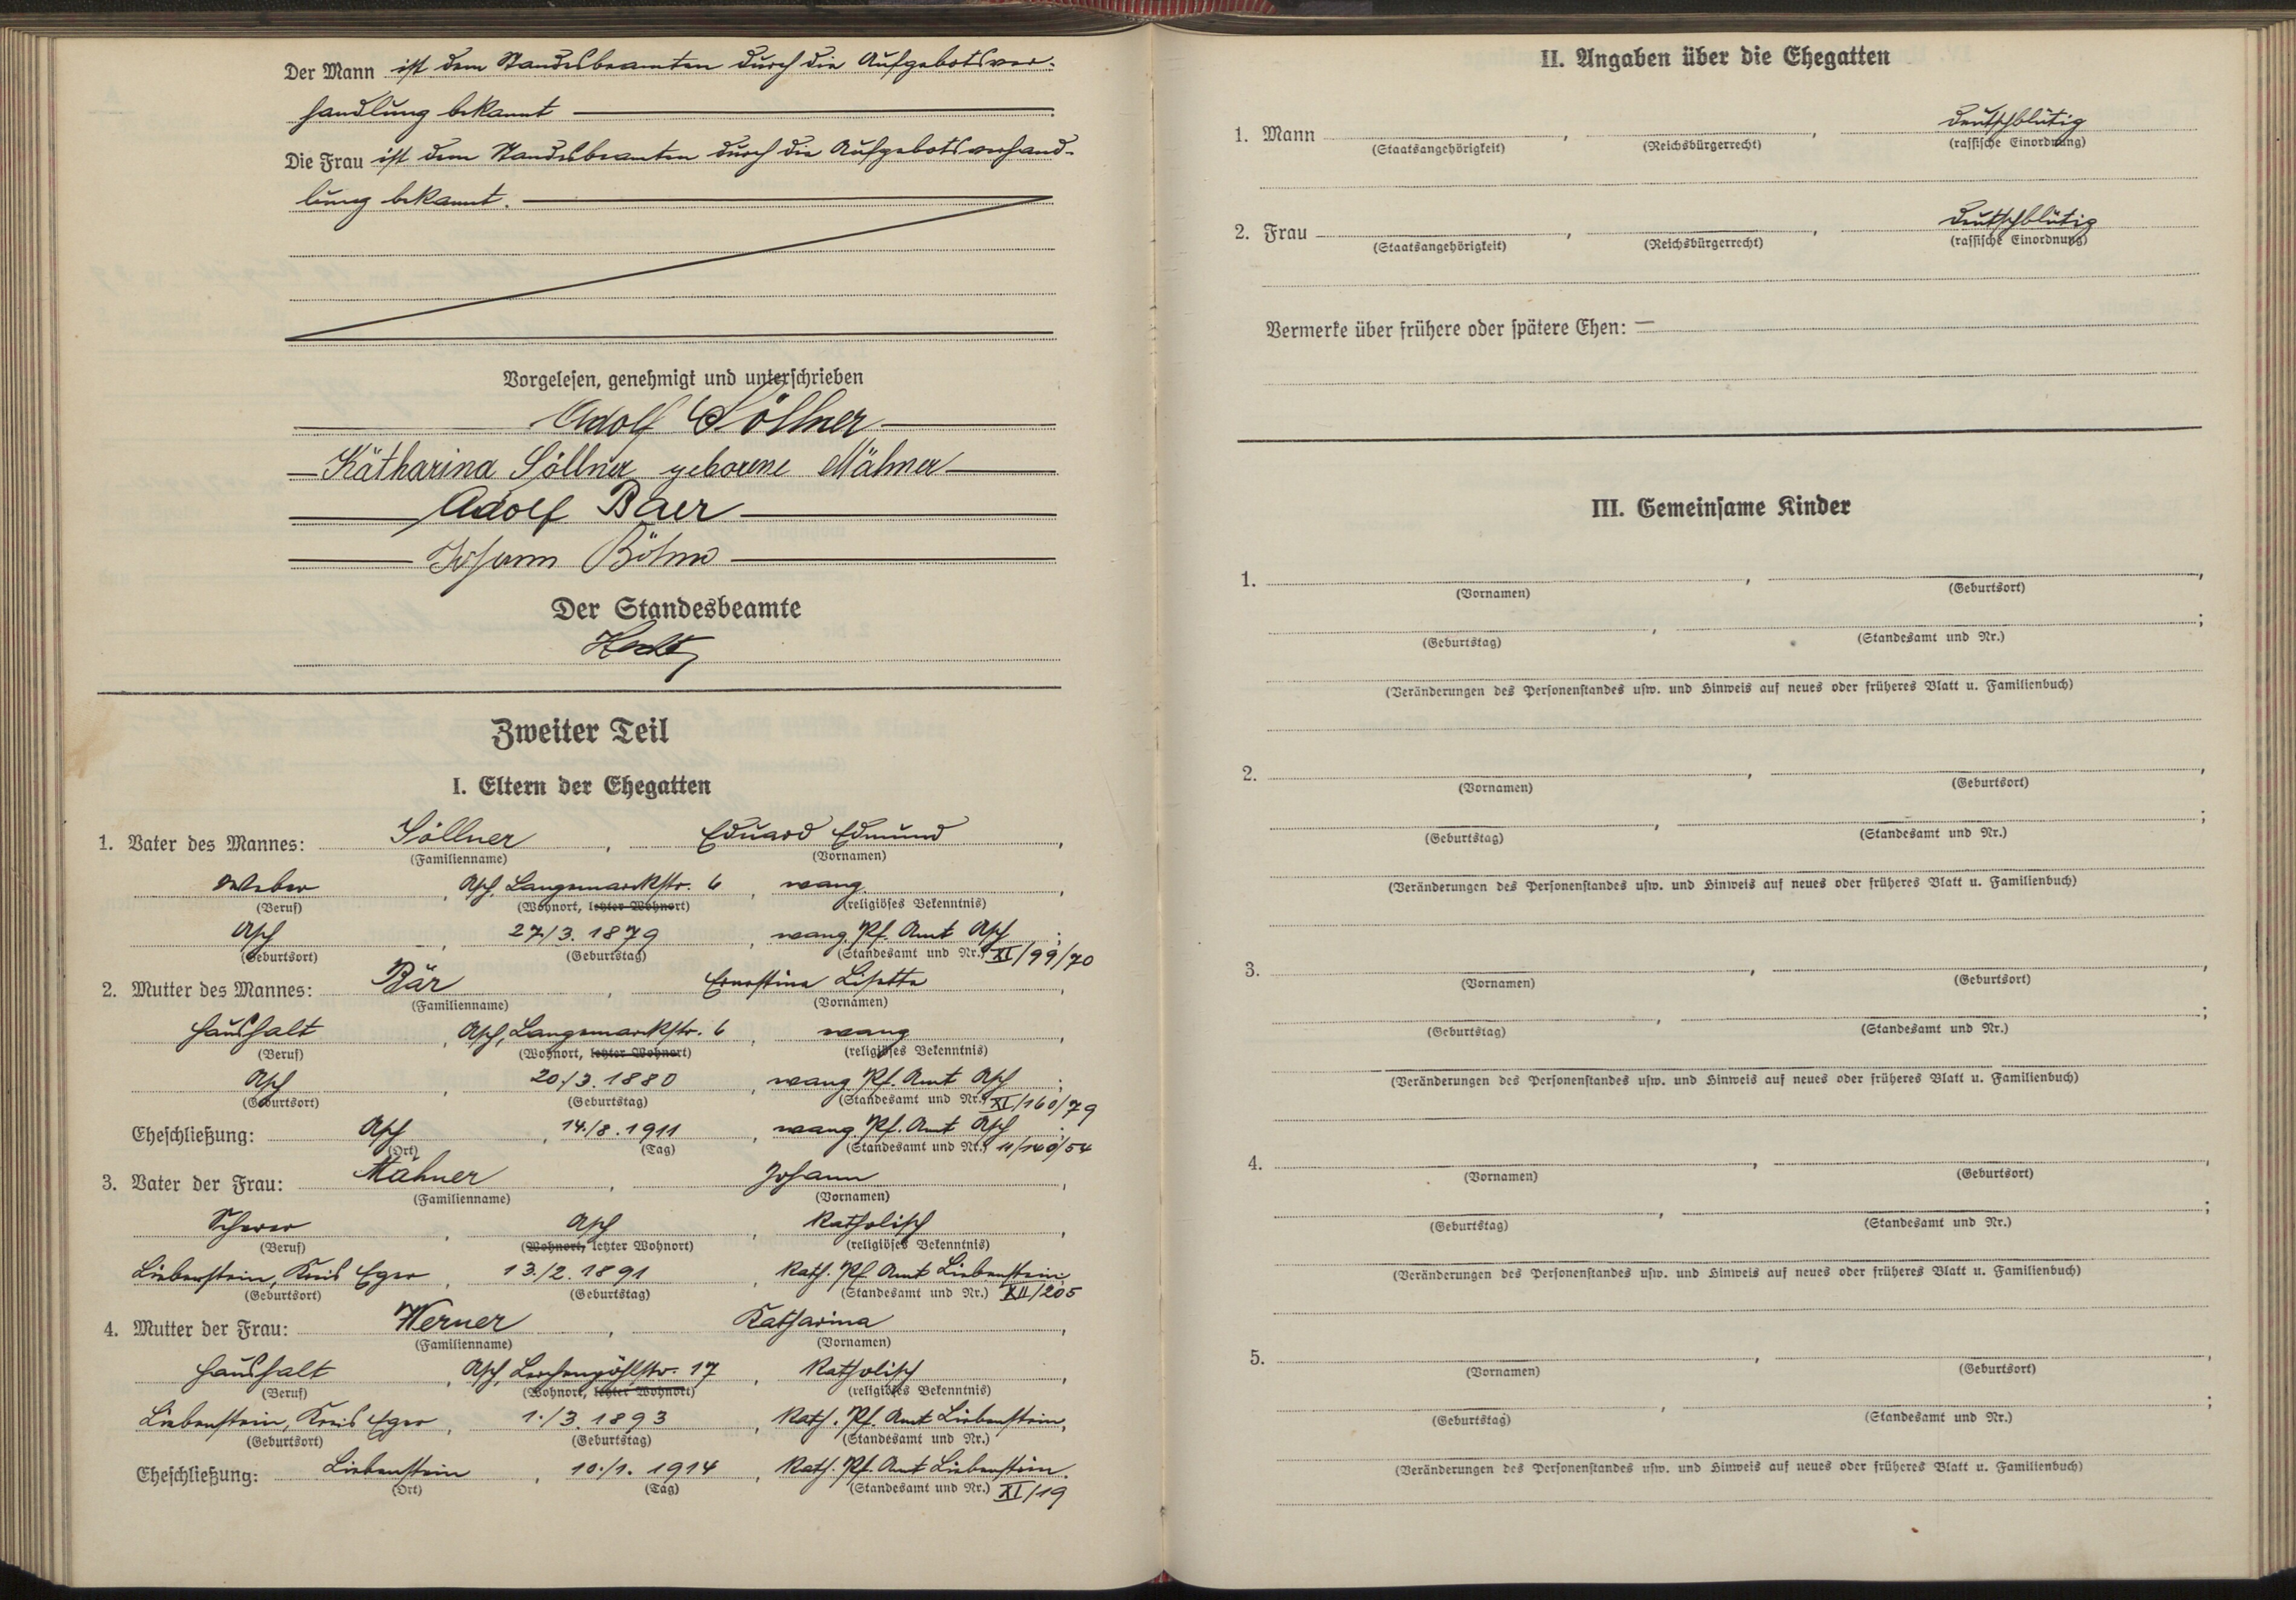 Der Mann ist dem Standesbeamten durch die Aufgebotsver-
handlung bekannt
Die Frau ist dem Standesbeamten durch die Aufgebotsverhand-
lung bekannt.
Vorgelesen, genehmigt und unterschrieben
Adolf Söllner
Kätharina Söllner geborene Mähner
Adolf Baer
Johann Böhm
Der Standesbeamte
Zweiter Teil
I. Eltern der Ehegatten
1. Vater des Mannes: Söllner, Eduard Edmund,
(Familienname) (Vornamen)
Weber, Asch, Langemarckstr. 6, evang.,
(Beruf) (Wohnort, letzter Wohnort) (religiöses Bekenntnis)
Asch, 27./3. 1879, evang. Pf. Amt Asch;
(Geburtsort) (Geburtstag) (Standesamt und Nr.) XI/99/70
2. Mutter des Mannes: Bär, Ernestina Lisetta,
(Familienname) (Vornamen)
Haushalt, Asch, Langemarckstr. 6, evang,
(Beruf) (Wohnort, letzter Wohnort) (religiöses Bekenntnis)
Asch, 20./3. 1880, evang. Pf. Amt Asch;
(Geburtsort) (Geburtstag) (Standesamt und Nr.) XI/160/79
Eheschließung: Asch, 14./8. 1911, evang. Pf. Amt Asch;
(Ort) (Tag) (Standesamt und Nr.) 11/140/54
3. Vater der Frau: Mähner, Johann,
(Familienname) (Vornamen)
Scherer, Asch, katholisch,
(Beruf) (Wohnort, letzter Wohnort) (religiöses Bekenntnis)
Liebenstein, Kreis Eger, 13./2. 1891, kath. Pf. Amt Liebenstein,
(Geburtsort) (Geburtstag) (Standesamt und Nr.) XII/205
4. Mutter der Frau: Werner, Katharina,
(Familienname) (Vornamen)
Haushalt, Asch, Lerchenpöhlstr. 17, katholisch,
(Beruf) (Wohnort, letzter Wohnort) (religiöses Bekenntnis)
Liebenstein, Kreis Eger, 1./3. 1893, kath. Pf. Amt Liebenstein,
(Geburtsort) (Geburtstag) (Standesamt und Nr.)
Eheschließung: Liebenstein, 10./1. 1914, kath. Pf. Amt Liebenstein.
(Ort) (Tag) (Standesamt und Nr.) XI/19
II. Angaben über die Ehegatten
1. Mann , , deutschblütig
(Staatsangehörigkeit) (Reichsbürgerrecht) (rassische Einordnung)
2. Frau , , deutschblütig
(Staatsangehörigkeit) (Reichsbürgerrecht) (rassische Einordnung)
Vermerke über frühere oder spätere Ehen: —
III. Gemeinsame Kinder
1. , ,
(Vornamen) (Geburtsort)
, ;
(Geburtstag) (Standesamt und Nr.)
(Veränderungen des Personenstandes usw. und Hinweis auf neues oder früheres Blatt u. Familienbuch)
2. , ,
(Vornamen) (Geburtsort)
, ;
(Geburtstag) (Standesamt und Nr.)
(Veränderungen des Personenstandes usw. und Hinweis auf neues oder früheres Blatt u. Familienbuch)
3. , ,
(Vornamen) (Geburtsort)
, ;
(Geburtstag) (Standesamt und Nr.)
(Veränderungen des Personenstandes usw. und Hinweis auf neues oder früheres Blatt u. Familienbuch)
4. , ,
(Vornamen) (Geburtsort)
, ;
(Geburtstag) (Standesamt und Nr.)
(Veränderungen des Personenstandes usw. und Hinweis auf neues oder früheres Blatt u. Familienbuch)
5. , ,
(Vornamen) (Geburtsort)
, ;
(Geburtstag) (Standesamt und Nr.)
(Veränderungen des Personenstandes usw. und Hinweis auf neues oder früheres Blatt u. Familienbuch)